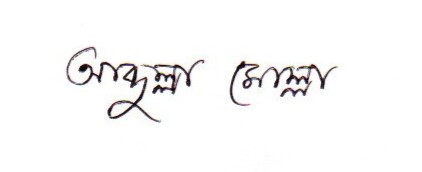 আব্দুল্লা মোল্লা